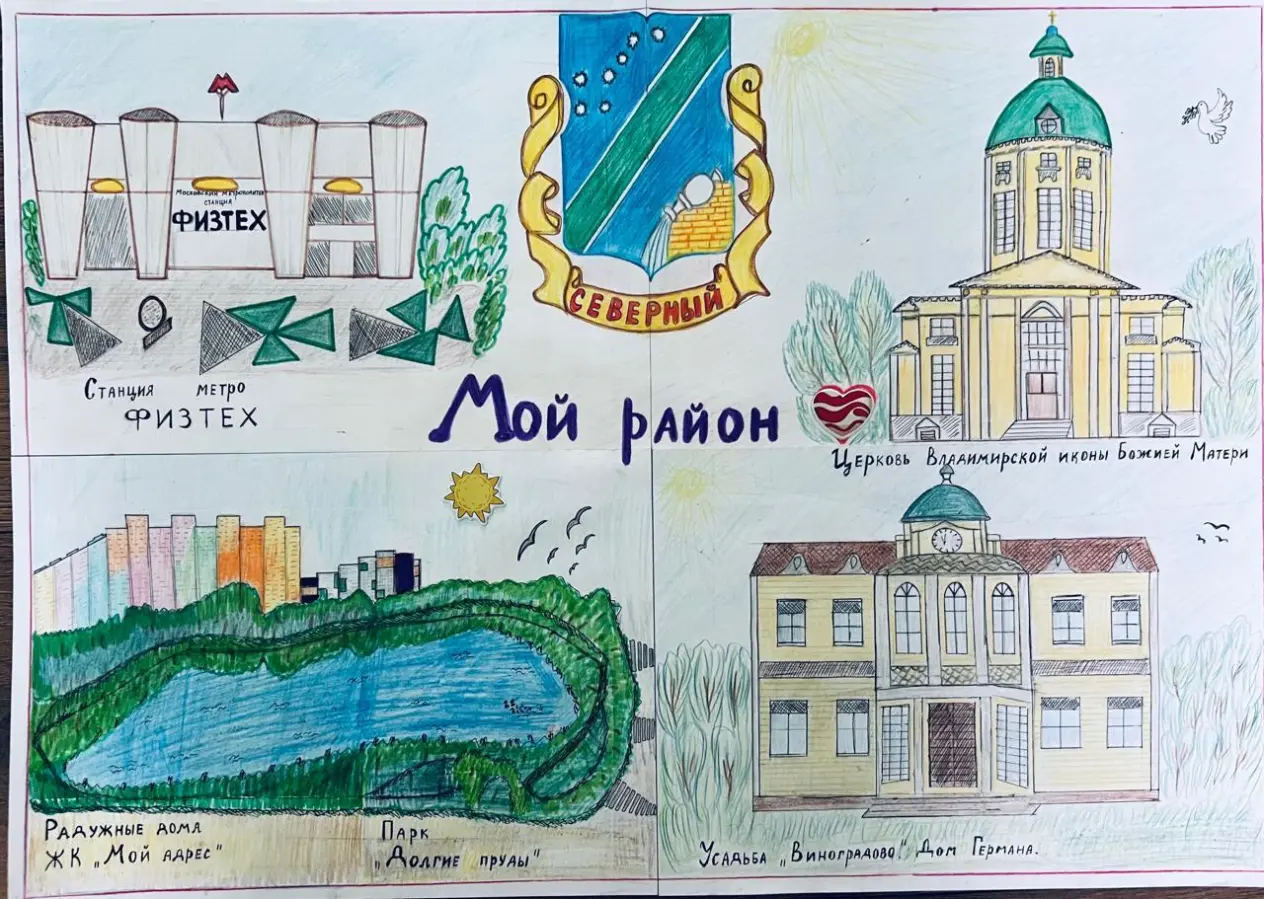 СЕВЕРНЫЙ
Московский метрополитен
станция
ФИЗТЕХ
Станция метро
ФИЗТЕХ
Мой район
Церковь Владимирской иконы Божией Матери
Радужные дома
ЖК „Мой адрес"
Парк
„Долгие пруды"
Усадьба „Виноградово". Дом Германа.